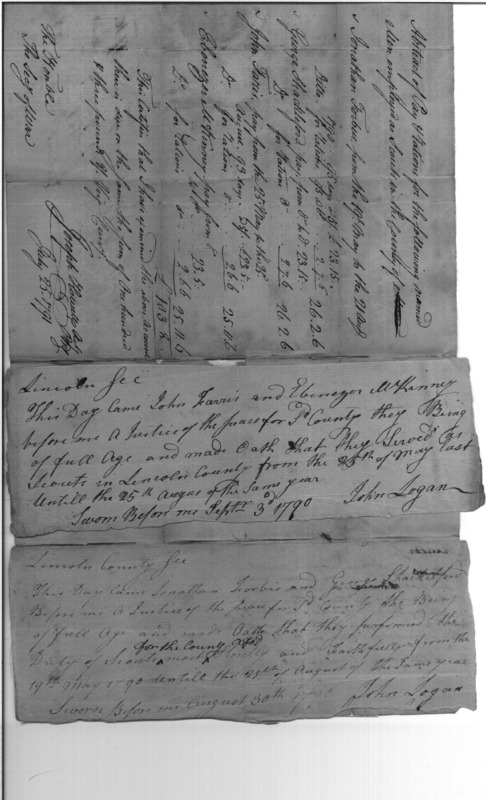 Abstract of Pay & Rations for the following named
Men employed as Scouts in the County of
Jonathan Forbis from the 19th May to the 21 Augt
pay 95 days
Ditto for Rations 2.7.6 26.2.6
George pay from do to do 23.15.
Do for Rations Do 2.7.6 26.2.6
John Farris pay from the 25 May to the 25
Do for rations 2.6.6 25.11.6
Ebenezer McKinney pay from do 23.5.
Do for Rations 2.6.6 25.11.6
£103.8.
This Certifies that I have examined the above Account
there is due on the same the sum of One hundred
& three pounds
Joseph
July 25 1791
The Honble
The Secy of War
Lincoln Sct
This Day Came John Farris and Ebenezer McKinney
before me A Justice of the peace for sd County they Being
of full Age and made Oath that they Served as
Scouts in Lincoln County from the 25th of May Last
Untill the 25th Augus of the Same year
Sworn Before me Septr 3d 1790 John Logan
Lincoln County Sct
This Day Came Jonathan Forbis and
Before me A Justice of the peace for sd County the Being
of full Age and made Oath that they performed the
for the County
Duty of Scouts and Faithfully from the
19th May 1790 Untill the 21st of August of the Same year
Sworn Before me August 30th 1790 John Logan